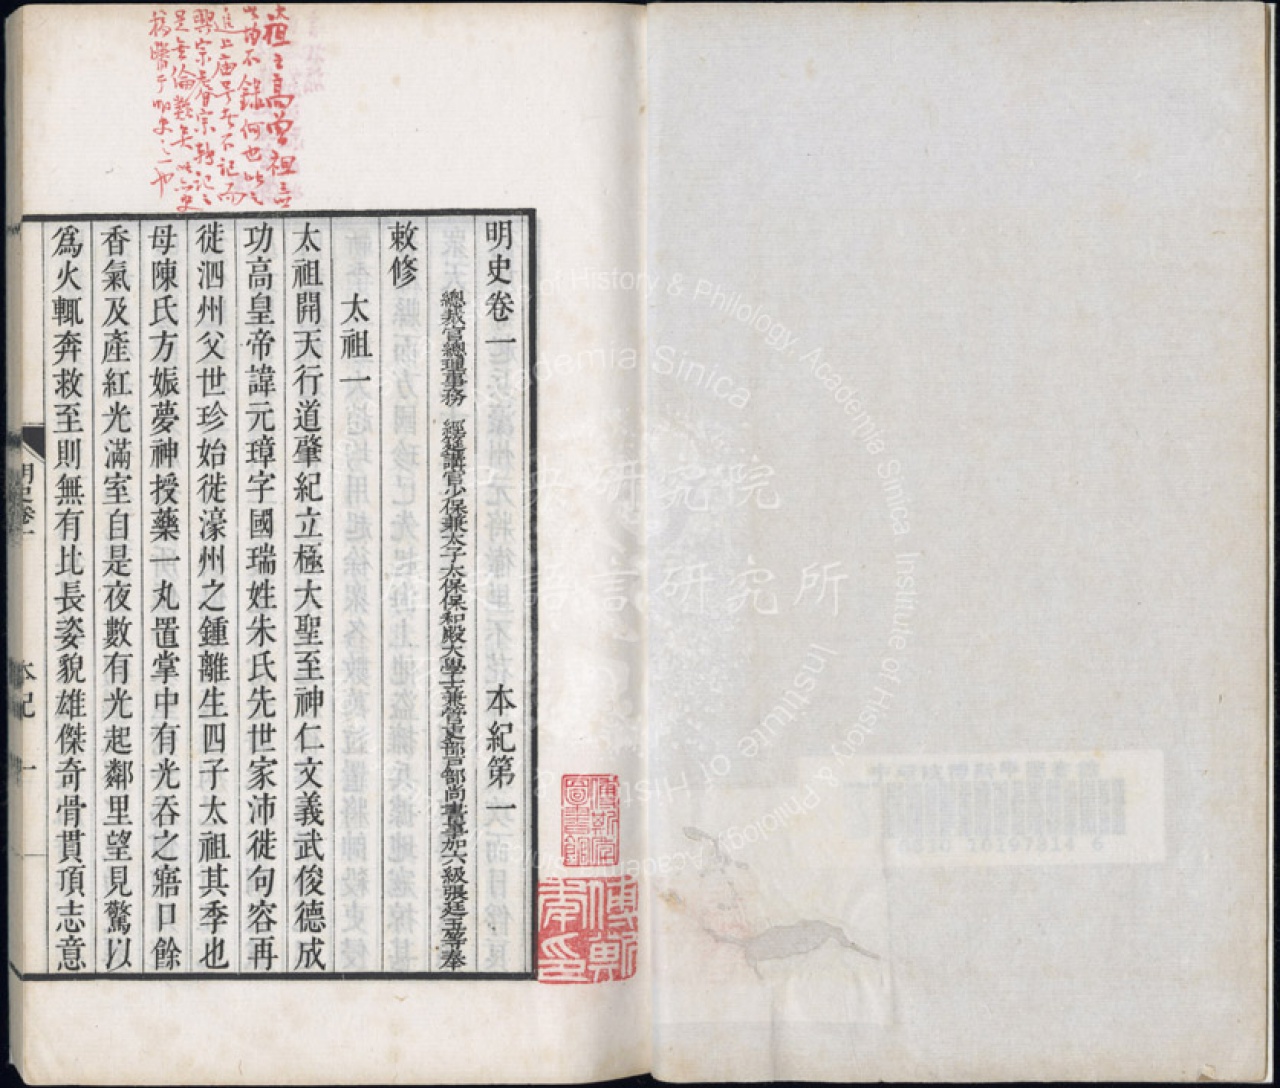 明史卷一 本紀第一
總裁官總理事務 經筵講官少保兼太子太保保和殿大學士兼管吏部戶部尚書事加六級張廷玉等奉
敕修
太祖一
太祖開天行道肇紀立極大聖至神仁文義武俊德成
功高皇帝諱元璋字國瑞姓朱氏先世家沛徙句容再
徙泗州父世珍始徙濠州之鍾離生四子太祖其季也
母陳氏方娠夢神授藥一丸置掌中有光吞之寤口餘
香氣及產紅光滿室自是夜數有光起鄰里望見驚以
為火輒奔救至則無有比長姿貌雄傑奇骨貫頂志意
明史卷一 本紀 一
太祖之高曾祖
皆不錄何也此
追上廟号者不記而
宗睿宗轉記之
是無倫
于明史之一
傅斯年圖書館
傅斯年印
中央研究院
歷史語言研究所
Institute of History & Philology, Academia Sinica